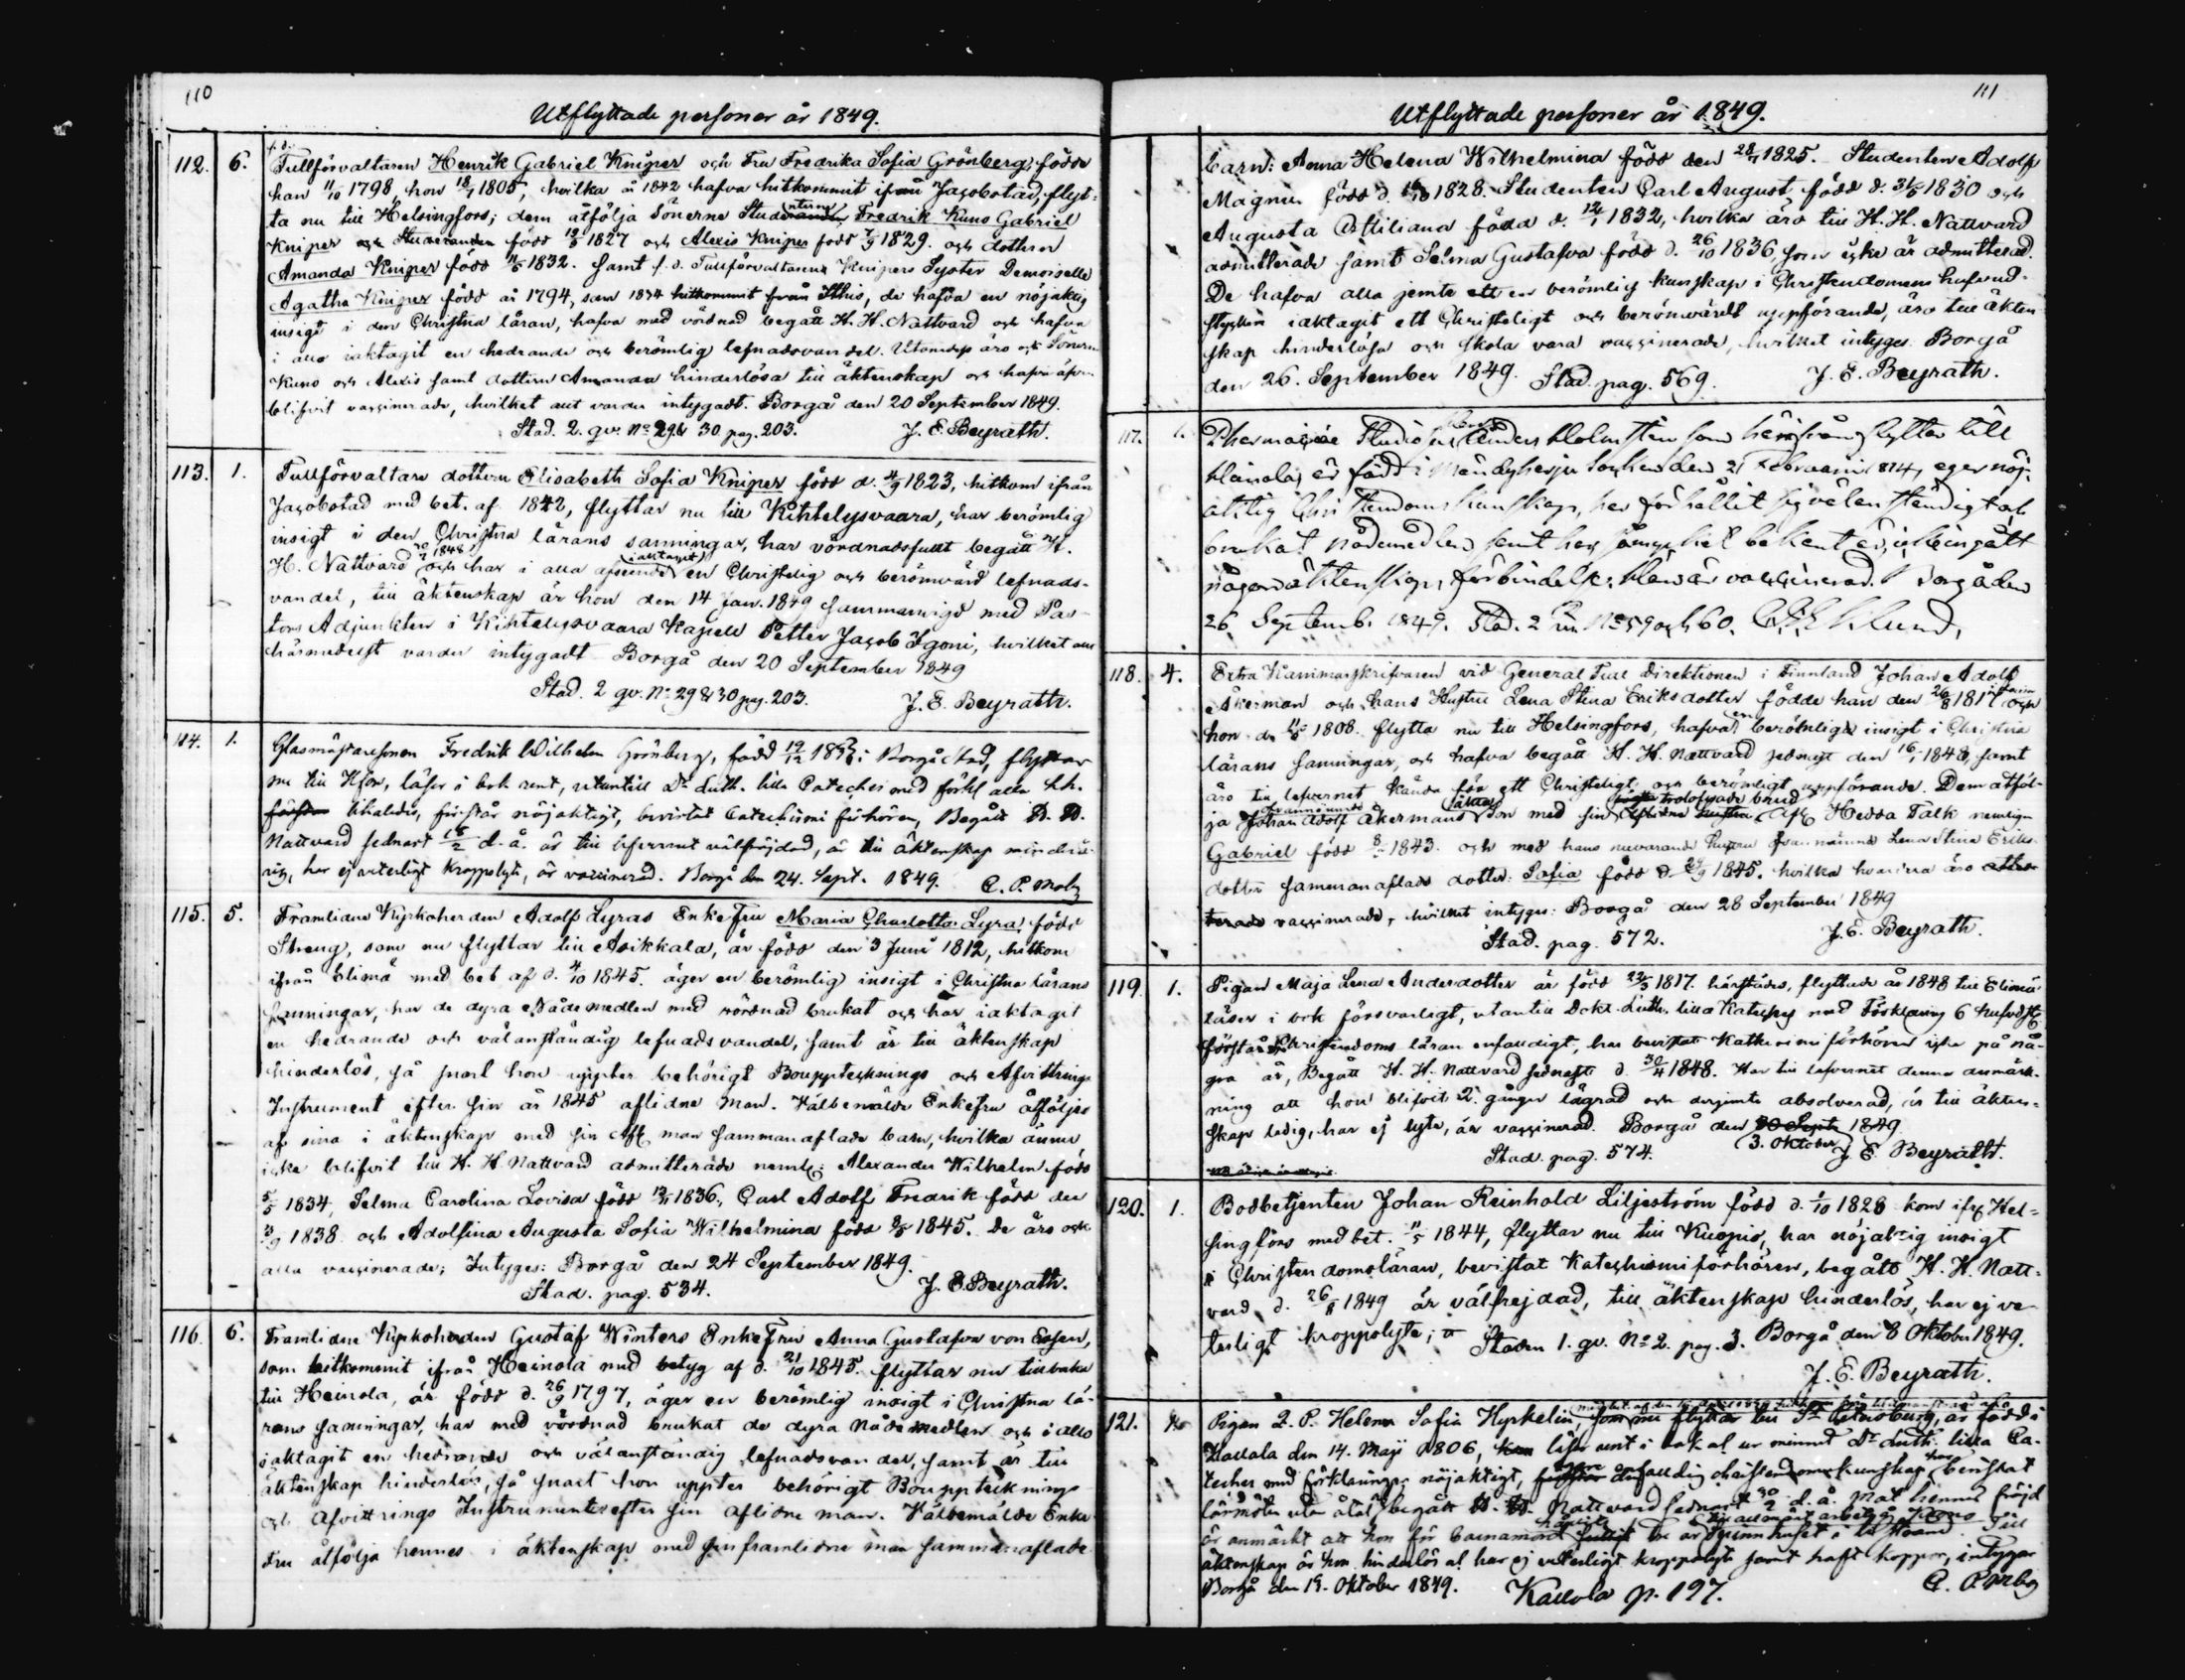 110
Utflyttade personer år 1849.
112. 6. f.d. Tullförvaltaren Henrik Gabriel Kniper och Fru Fredrika Sofia Grönberg, födde
han 11/10 1798, hon 18/1 1805, hvilka år 1842 hafva hitkommit ifrån Jacobstad, flyt-
ta nu till Helsingfors; dem åtfölja Sönerne Studenterne, Fredrik Kuno Gabriel
Kniper och Studeranden född 19/5 1827 och Alexis Kniper född 7/9 1829. och dottren
Amanda Kniper född 11/5 1832. samt f.d. Tullförvaltarens Knipers Syster Demoiselle
Agatha Kniper född år 1794, som 1834 hitkommit från Sthus, de hafva en nöjaktig
insigt i den Christna läran, hafva med vördnad begått H. H. Nattvard och hafva
i allo iaktagit en hedrande och berömlig lefnadsvandel. Utomdess äro och Sönerne
Kuno och Alexis samt dottren Amanda hinderlösa till äktenskap och hafva äfven
blifvit vaccinerade, hvilket allt varder intygadt. Borgå den 20 September 1849.
Stad. 2. gv. No 29 & 30 pag. 203. J. E. Beyrath.
113. 1. Tullförvaltare dottren Elisabeth Sofia Kniper född d. 4/9 1823, hitkom ifrån
Jacobstad med bet. af 1842, flyttar nu till Kihtelysvaara, har berömlig
insigt i den Christna lärans sanningar, har vördnadsfullt begått H.
H. Nattvard 1848 och har i alla afseende iaktagit en Christelig och berömvärd lefnads-
vandel, till äktenskap är hon den 14 Jan. 1849 sammanvigd med Pas-
tors Adjunkten i Kihtelysvaara Kapell Petter Jacob Igoni, hvilket allt
härmedelst varder intygadt Borgå den 20 September 1849
Stad. 2 gv. No 29 & 30 pag. 203. J. E. Beyrath.
114. 1. Glasmästaresonen Fredrik Wilhelm Grönberg, född 19/12 i Borgå Stad, flyttar
nu till Hfors, läser i bok rent, utantill Dr Luth. lilla Cateches med förkl. alla hh.
tillhaledes, förstår nöjaktigt, bevistat Catechismi förhören, Begått H. H.
Nattvard sednast 18/2 d. å. är till lefvernet välfrejdad, är till äktenskap minderå-
rig, har ej veterligt kroppslyte, är vaccinerad. Borgå den 24. Sept. 1849. C. P. Moby
115. 5. Framlidne Kyrkoherden Adolf Lyras EnkeFru Maria Charlotta Lyra, född
Streng, som nu flyttar till Asikkala, är född den 3 Juni 1812, hitkom
ifrån Elimä med bet af d. 4/10 1845. äger en berömlig insigt i Christna lärans
sanningar, har de dyra Nådemedlen med vördnad brukat och har iaktagit
en hedrande och välanständig lefnadsvandel, samt är till äktenskap
hinderlös, så snart hon uppter behörigt Boupptecknings och Afvittrings
Instrument efter sin år 1845 aflidne man. Välbemälde EnkeFru åtföljes
af sina i äktenskap med sin Afl. man sammanaflade barn, hvilka ännu
icke blifvit till H. H Nattvard admitterade nemln: Alexander Wilhelm född
5/5 1834, Selma Carolina Lovisa född 1836, Carl Adolf Fredrik född den
3/9 1838 och Adolfina Augusta Sofia Wilhelmina född 1845. De äro och
alla vaccinerade; Intygges: Borgå den 24 September 1849.
Stad. pag. 534. J. E. Beyrath.
116. 6. Framlidne Kyrkoherden Gustaf Winters EnkeFru Anna Gustafva von Essen,
som hitkommit ifrån Heinola med betyg af d. 21/10 1845. flyttar nu tillbaka
till Heinola, är född d. 26/9 1797, äger en berömlig insigt i Christna lä-
rans sanningar, har med vördnad brukat de dyra Nådemedlen och i allo
iaktagit en hedrande och välanständig lefnadsvandel, samt är till
äktenskap hinderlös, så snart hon uppter behörigt Boupptecknings
och Afvittrings Instrument efter sin aflidne man. Välbemälde Enke
Fru åtfölja hennes i äktenskap med sin framlidne man sammanaflade
111
Utflyttade personer år 1849.
barn: Anna Helena Wilhelmina född den 28/7 1825. Studenten Adolf
Magnus född d. 1828. Studenten Carl August född d. 31/5 1830 och
Augusta Ottiliana född d. 12/1 1832, hvilka äro till H. H. Nattvard
admitterade samt Selma Gustafva född d. 26/10 1836 som icke är admitterad.
De hafva alla jemte ett en berömlig kunskap i Christendomens hufvud-
stycken iaktagit ett Christeligt och berömvärdt uppförande, äro till äkten-
skap hinderlösa och skola vara vaccinerade, hvilket intyges. Borgå
den 26. September 1849. Stad. pag. 569. J. E. Beyrath.
117. 1. Pharmaciæ Studiosus Anders Holmsten som härifrån flyttar till
Hainola, är född i Mändyharju Socken den 21 Februari 1814, eger nöj-
aktig Christendomskunskap, har förhållit sig välanständigt och
brukat nådemedlen samt har såmycket bekant är, icke ingått
någon äktenskaps förbindelse. Han är vaccinerad. Borgå den
26 Septemb. 1849. Stad. 2 No 59 och 60.
118. 4. Extra Kammarskrifvaren vid General Tull Direktionen i Finnland Johan Adolf
Åkerman och hans Hustru Lena Stina Eriksdotter födde han den 26/8 1817 och
hon d. 1808. flytta nu till Helsingfors, hafva en berömlig insigt i Christna
lärans sanningar, och hafva begått H. H. Nattvard sednast den 16 1848, samt
äro till lefvernet kända för ett Christeligt och berömligt uppförande. Dem åtföl-
ja Johan Adolf Åkermans Son med sin trolofvade brud Afl. Hedda Falk nemligen
Gabriel född 1843. och med hans nuvarande hustru ofvannämnde Lena Stina Eriks-
dotter sammanaflade dotter: Sofia född d. 24/9 1845. hvilka hvardera äro
vaccinerade, hvilket intyges: Borgå den 28 September 1849
Stad. pag. 572. J. E. Beyrath.
119. 1. Pigan Maja Lena Andersdotter är född 22/3 1817. härstädes, flyttade år 1848 till Elimä
läser i bok försvarligt, utantill Dokt. Luth. lilla Kateches med Förklaring 6 hufvdst.
förstår Christendoms läran enfaldigt, har bevistat Kathesismi förhören icke på nå-
gra år, Begått H. H. Nattvard sednast d. 30/4 1848. Har till lefvernet denna anmärk-
ning att hon blifvit 2 gånger lägrad och derjemte absolverad, är till äkten-
skap ledig, har ej lyte, är vaccinerad. Borgå den 30 Septe 3. Oktober 1849.
Stad. pag. 574. J. E. Beyrath.
120. 1. Bodbetjenten Johan Reinhold Liljeström född d. 1/10 1828 kom ifrån Hel-
singfors med bet. 11/5 1844, flyttar nu till Kuopio, har nöjaktig insigt
i Christendomsläran, bevistat Kateshismiförhören, begått H. H. Natt-
vard d. 26/8 1849 är välfrejdad, till äktenskap hinderlös, har ej ve-
terligt kroppslyte; Staden 1. gv. No 2. pag. 3. Borgå den 8 Oktober 1849.
J. E. Beyrath.
121. Pigan Q. P. Helena Sofia Hyrkelin, som nu flyttar till St Petersburg, är född i
Kallola den 14. Maji 1806, läser rent i bok af ur minnet Dr Luth. lilla Ca-
teches med förklaringen nöjaktigt, enfaldig christendomskunskap, har bevistat
läsmöten utan åtal, begått H. H. Nattvard sednast 30/2 d. å. Mot hennes frejd
är anmärkt att hon för barnamord suttit tre år Spinnhuset i Till
äktenskap är hon hinderlös af har ej veterligt kroppslyte samt haft koppor, intygar
Borgå den 19. Oktober 1849. Kallola p. 197. C. P. Moby